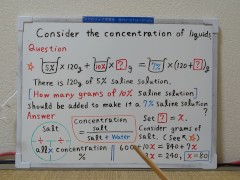 Consider the concentration of liquids
Question
☆ 5% × 120g + 10% × ?g = 7% × (120+?)g
There is 120g of 5% saline solution.
[How many grams of 10% saline solution]
should be added to make it a 7% saline solution?
Answer
Set ? = x.
Concentration = salt / salt + Water
Consider grams of salt. (See ☆)
salt
Concentration %
600+10x = 840+7x
3x = 240, x=80